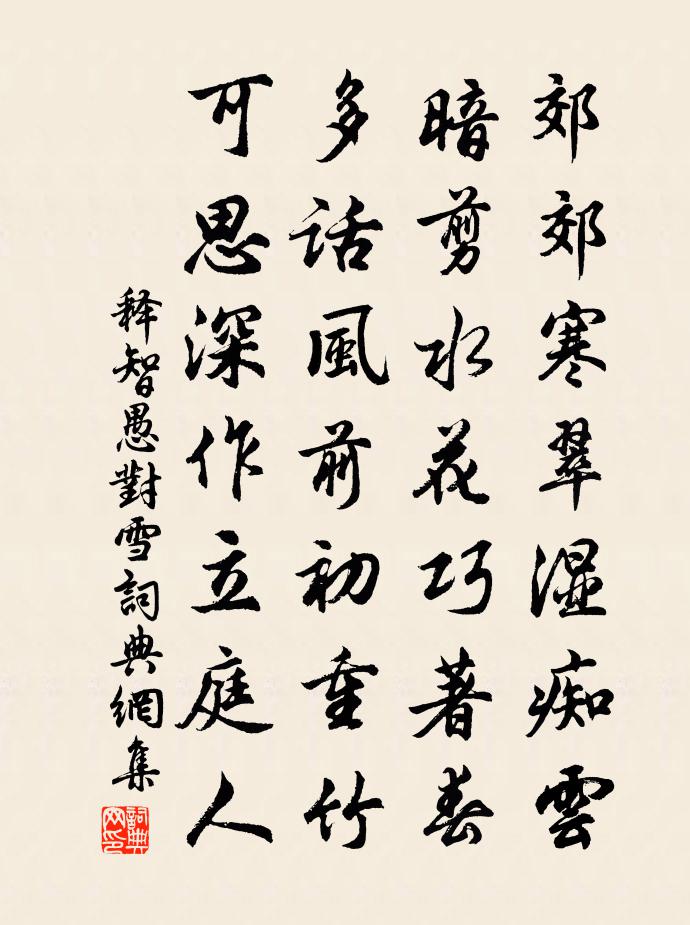 郊郊寒翠湿痴雲
暗剪水花巧著春
多話風前初重竹
可思深作立庭人
释智愚對雪詞典網集
詞典网印